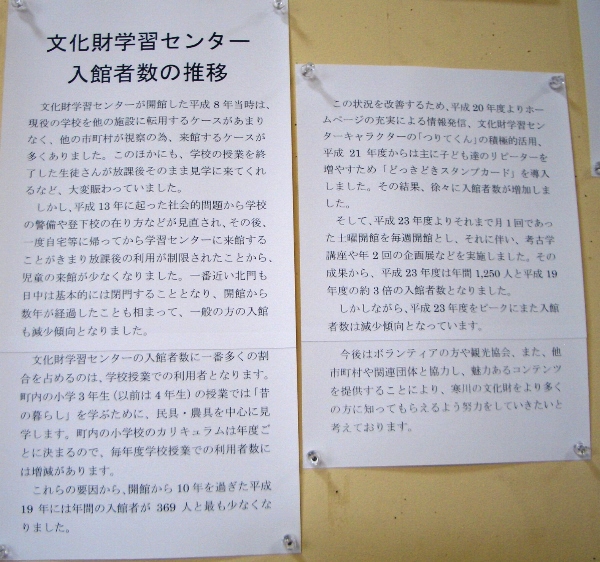 文化財学習センター
入館者数の推移
文化財学習センターが開館した平成8年当時は、
現役の学校を他の施設に転用するケースがあまり
なく、他の市町村が視察の為、来館するケースが
多くありました。このほかにも、学校の授業を終
了した生徒さんが放課後そのまま見学に来てくれ
るなど、大変賑わっていました。
しかし、平成13年に起った社会的問題から学校
の警備や登下校の在り方などが見直され、その後、
一度自宅等に帰ってから学習センターに来館する
ことがきまり放課後の利用が制限されたことから、
児童の来館が少なくなりました。一番近い北門も
日中は基本的には閉門することとなり、開館から
数年が経過したことも相まって、一般の方の入館
も減少傾向となりました。
文化財学習センターの入館者数に一番多くの割
合を占めるのは、学校授業での利用者となります。
町内の小学3年生（以前は4年生）の授業では「昔
の暮らし」を学ぶために、民具・農具を中心に見
学します。町内の小学校のカリキュラムは年度ご
とに決まるので、毎年度学校授業での利用者数に
は増減があります。
これらの要因から、開館から10年を過ぎた平成
19年には年間の入館者が369人と最も少なくな
りました。
この状況を改善するため、平成20年度よりホー
ムページの充実による情報発信、文化財学習セン
ターキャラクターの「つりてくん」の積極的活用、
平成21年度からは主に子ども達のリピーターを
増やすため「どっきどきスタンプカード」を導入
しました。その結果、徐々に入館者数が増加しま
した。
そして、平成23年度よりそれまで月1回であっ
た土曜開館を毎週開館とし、それに伴い、考古学
講座や年2回の企画展などを実施しました。その
成果から、平成23年度は年間1,250人と平成19
年度の約3倍の入館者数となりました。
しかしながら、平成23年度をピークにまた入館
者数は減少傾向となっています。
今後はボランティアの方や観光協会、また、他
市町村や関連団体と協力し、魅力あるコンテンツ
を提供することにより、寒川の文化財をより多く
の方に知ってもらえるよう努力をしていきたいと
考えております。